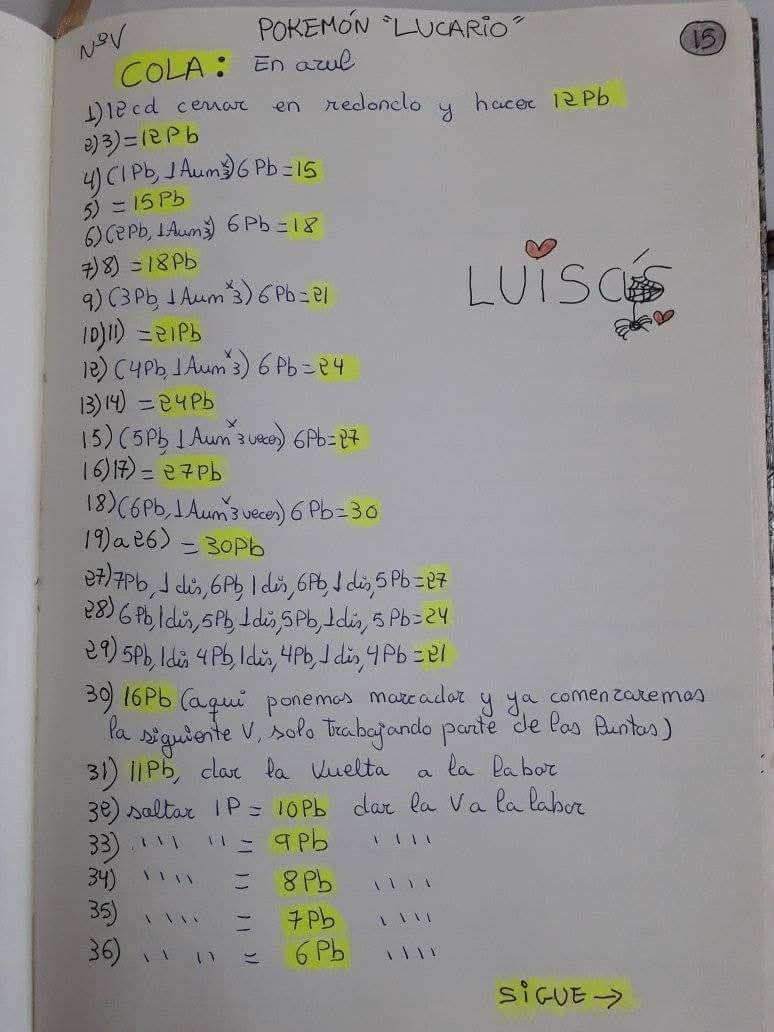 NºV
POKEMÓN "LUCARIO"
15
COLA: En azul
1) 12 cd cerrar en redondo y hacer 12Pb
2)3) = 12Pb
4) (1Pb, 1Aum x3) 6Pb = 15
5) = 15Pb
6) (2Pb, 1Aum x3) 6Pb = 18
7)8) = 18Pb
9) (3Pb, 1Aum x3) 6Pb = 21
10)11) = 21Pb
12) (4Pb, 1Aum x3) 6Pb = 24
13)14) = 24Pb
15) (5Pb, 1Aum x3 veces) 6Pb = 27
16)17) = 27Pb
18) (6Pb, 1Aum x3 veces) 6Pb = 30
19) a 26) = 30Pb
27) 7Pb, 1dis, 6Pb, 1dis, 6Pb, 1dis, 5Pb = 27
28) 6Pb, 1dis, 5Pb, 1dis, 5Pb, 1dis, 5Pb = 24
29) 5Pb, 1dis 4Pb, 1dis, 4Pb, 1dis, 4Pb = 21
30) 16Pb (aquí ponemos marcador y ya comenzaremos
la siguiente V, solo trabajando parte de las Puntas)
31) 11Pb, dar la vuelta a la labor
32) saltar 1P = 10Pb dar la V a la labor
33) '''' '' = 9Pb ''''
34) '''' = 8Pb ''''
35) '''' = 7Pb ''''
36) '' '' = 6Pb ''''
SIGUE →